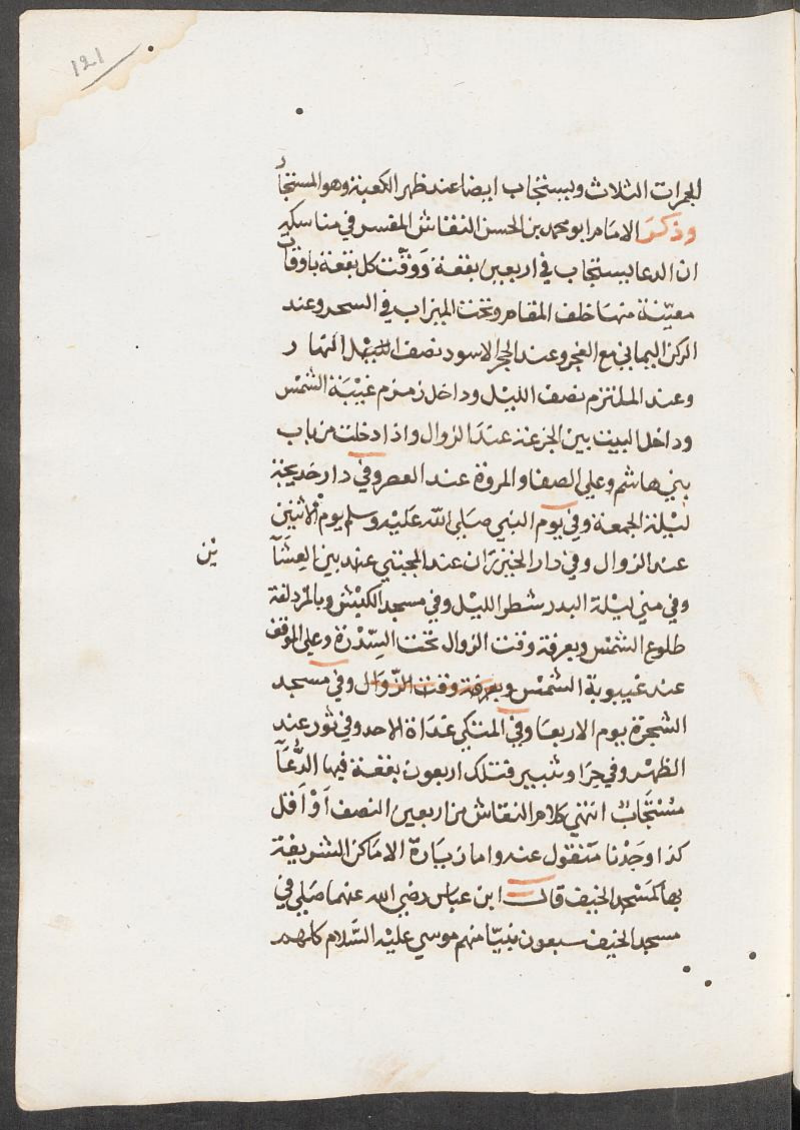 121
الجمرات الثلاث ويستجاب ايضا عند ظهر الكعبة وهو المستجار
وذكر الامام ابو محمد بن الحسن النقاش المفسر في مناسكه
ان الدعا يستجاب في اربعين بقعة ووقت كل بقعة باوقات
معينة منها خلف المقام وتحت الميزاب في السحر وعند
الركن اليماني مع الفجر وعند الحجر الاسود نصف النهار
وعند الملتزم نصف الليل وداخل زمزم غيبة الشمس
وداخل البيت بين الجزعة عند الزوال واذا دخلت من باب
بني هاشم وعلي الصفا والمروة عند العصر وفي دار خديجة
ليلة الجمعة وفي يوم النبي صلى الله عليه وسلم يوم الاثنين
عند الزوال وفي دار الخيزران عند المجتني عند بين العشآ
ين
وفي مني ليلة البدر شطر الليل وفي مسجد الكبش وبالمزدلفة
طلوع الشمس وبعرفة وقت الزوال تحت السدرة وعلي الموقف
عند غيبوبة الشمس وبعرفة وقت الزوال وفي مسجد
الشجرة يوم الاربعا وفي المتكي غداة الاحد وفي ثور عند
الظهر وفي حرا وثبير فتلك اربعون بقعة فيها الدعآ
مستجاب انتهي كلام النقاش من اربعين النصف او اقل
كذا وجدنا منقول عنه واما زيارة الاماكن الشريفة
بها كمسجد الخيف قال ابن عباس رضي الله عنهما صلي في
مسجد الخيف سبعون نبيا منهم موسي عليه السلام كلهم